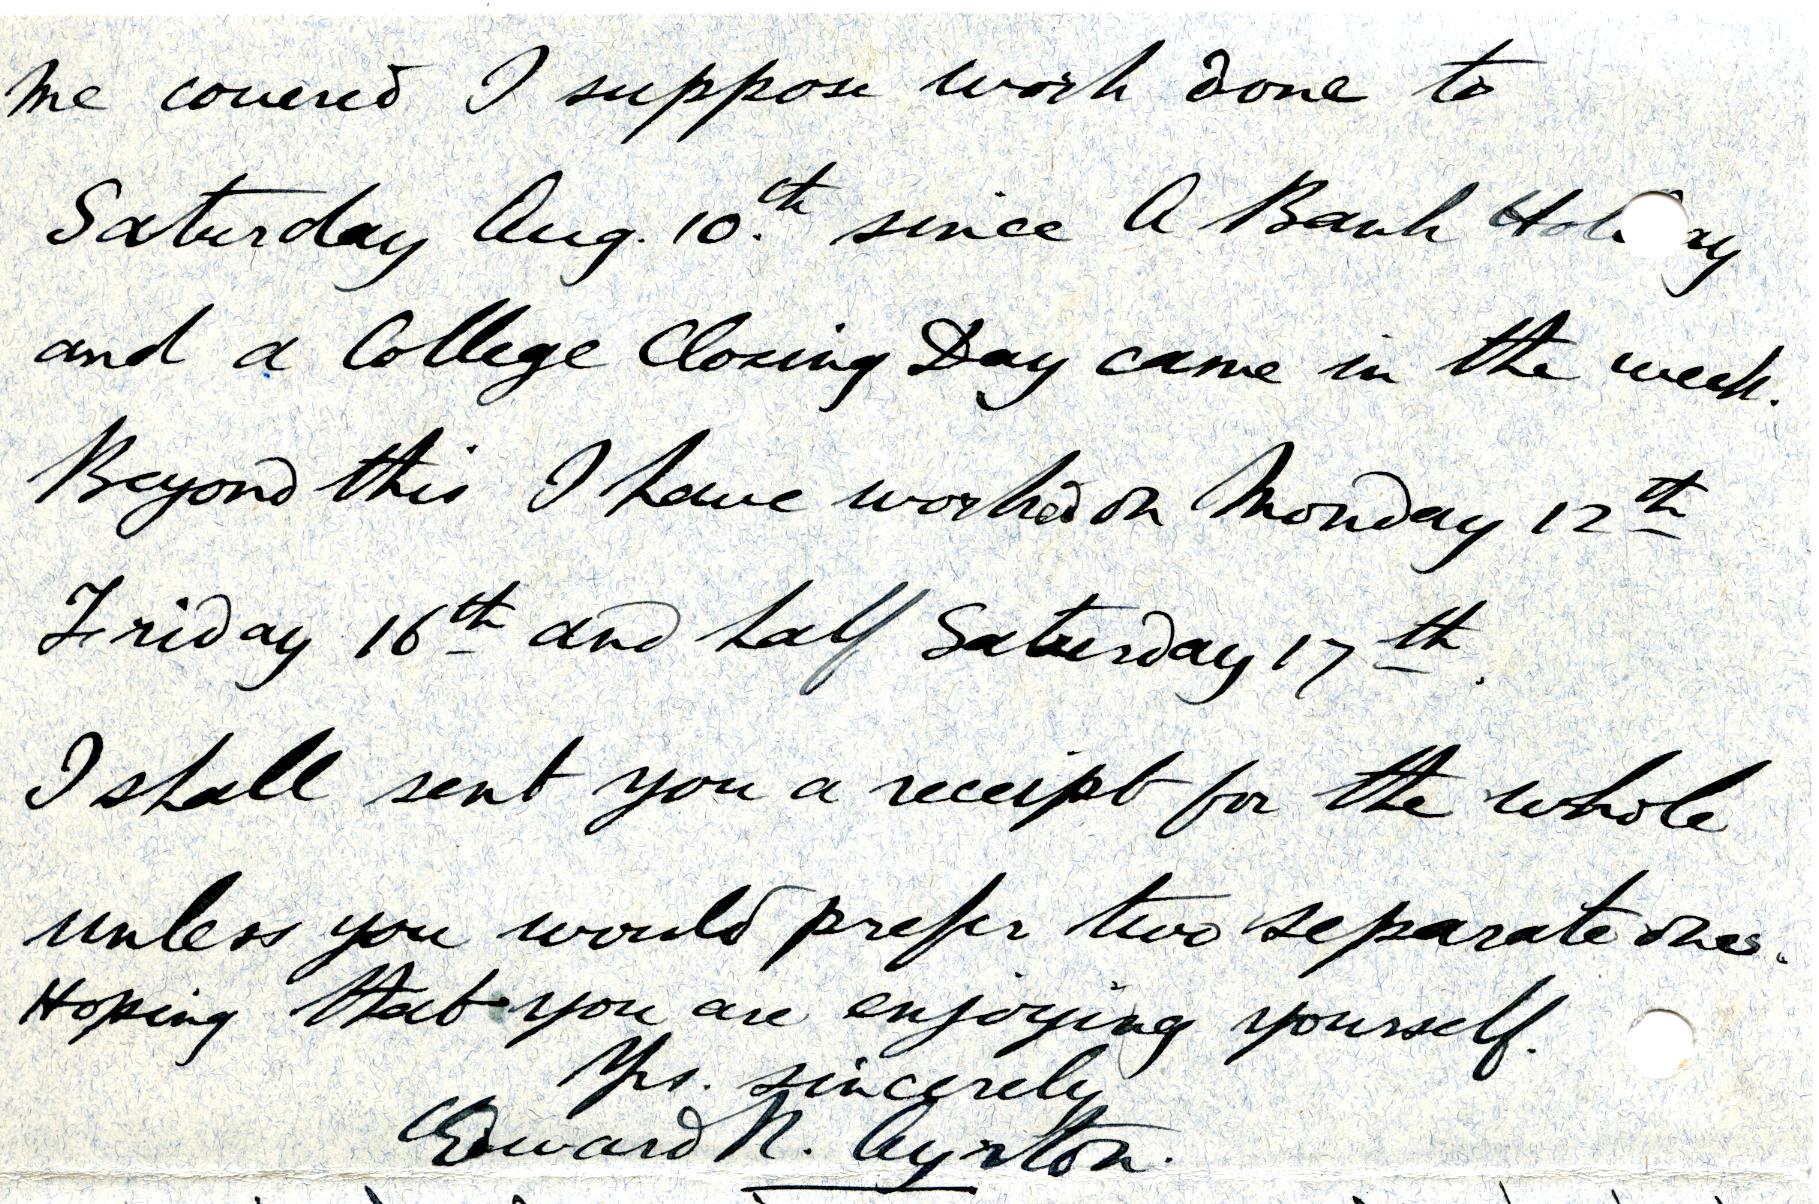 me covered I suppose work done to
Saturday Aug. 10.th since A Bank Holiday
and a College Closing Day came in the week.
Beyond this I have worked on Monday 12th
Friday 16th and half Saturday 17th.
I shall sent you a receipt for the whole
unless you would prefer two separate ones.
Hoping that you are enjoying yourself.
Yrs. sincerely
Edward R. Ayrton.